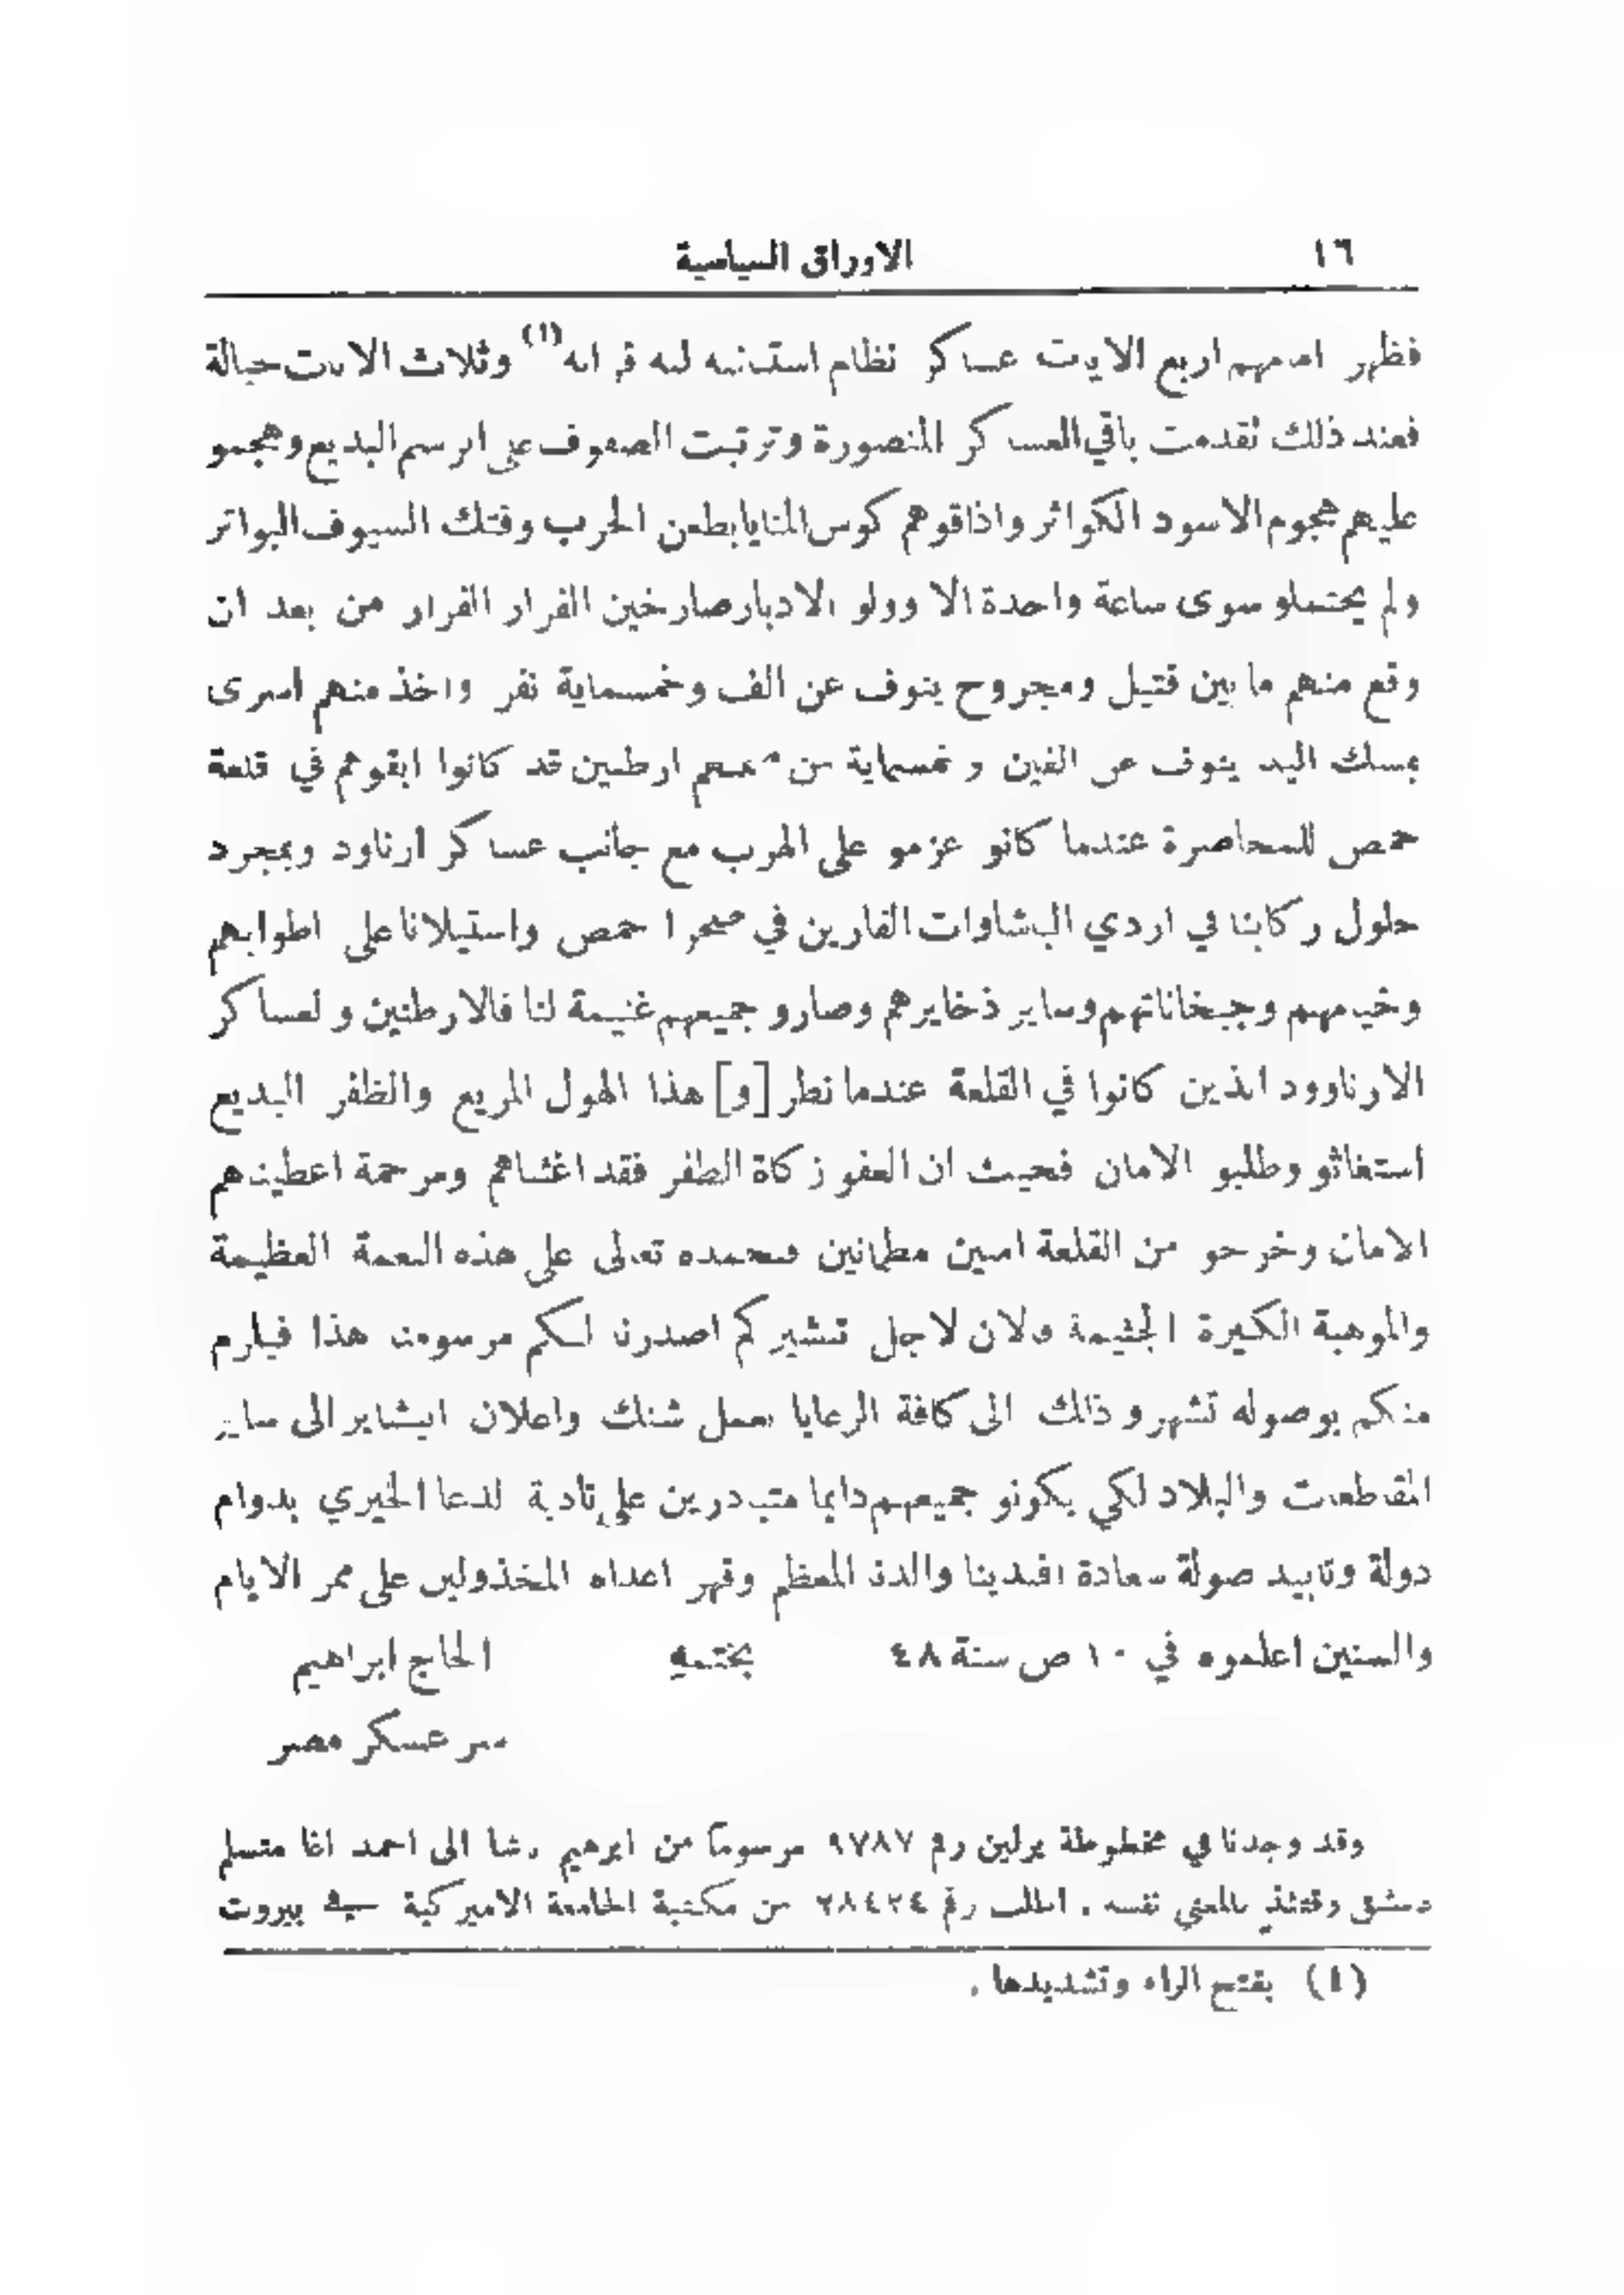 ١٦ الاوراق السياسية
فظهر امامهم اربع الايات عساكر نظام (١) وثلاث الايات خيالة
فعند ذلك تقدمت باقي العساكر المنصورة وترتبت الصفوف على الرسم البديع وهجمو
عليهم هجوم الاسود الكواثر واذاقوهم كوس المنايا بطعن الحرب وفتك السيوف البواتر
ولم يحتملو سوى ساعة واحدة الا وولو الادبار صارخين الفرار الفرار من بعد ان
وقع منهم ما بين قتيل ومجروح ينوف عن الف وخمسماية نفر واخذ منهم اسرى
بمسك اليد ينوف عن الفين وخمسماية من ارطتين قد كانوا ابقوهم في قلعة
حمص للمحاصرة عندما كانو عزمو على الهرب مع جانب عساكر ارناود وبمجرد
حلول ركابنا في اردي البشاوات الفارين في صحرا حمص واستيلانا على اطوابهم
وخيامهم وجبخاناتهم وساير ذخايرهم وصارو جميعهم غنيمة لنا فالارطتين والعساكر
الارناوود الذين كانوا في القلعة عندما نظر[و] هذا الهول المريع والظفر البديع
استغاثو وطلبو الامان فحيث ان العفو زكاة الظفر فقد اغثناهم ومرحمة اعطيناهم
الامان وخرجو من القلعة امنين مطمانين فنحمده تعالى على هذه النعمة العظيمة
والموهبة الكبيرة الجثيمة ولان لاجل تبشيركم اصدرنا لكم مرسومنا هذا فيلزم
منكم بوصوله تشهرو ذلك الى كافة الرعايا بعمل شنك واعلان البشاير الى ساير
المقاطعات والبلاد لكي يكونو جميعهم دايما متبادرين على تادية الدعا الخيري بدوام
دولة وتاييد صولة سعادة افندينا والدنا المعظم وقهر اعداه المخذولين على ممر الايام
والسنين اعلموه في ١٠ ص سنة ٤٨ بختمه الحاج ابراهيم
سر عسكر مصر
وقد وجدنا في مخطوطة برلين رقم ٩٧٨٧ مرسوماً من ابرهيم باشا الى احمد اغا متسلم
دمشق وقتئذٍ بالمعنى نفسه . اطلب رقم ٢٨٤٢٤ من مكتبة الجامعة الاميركية في بيروت
(١) بفتح الراء وتشديدها .